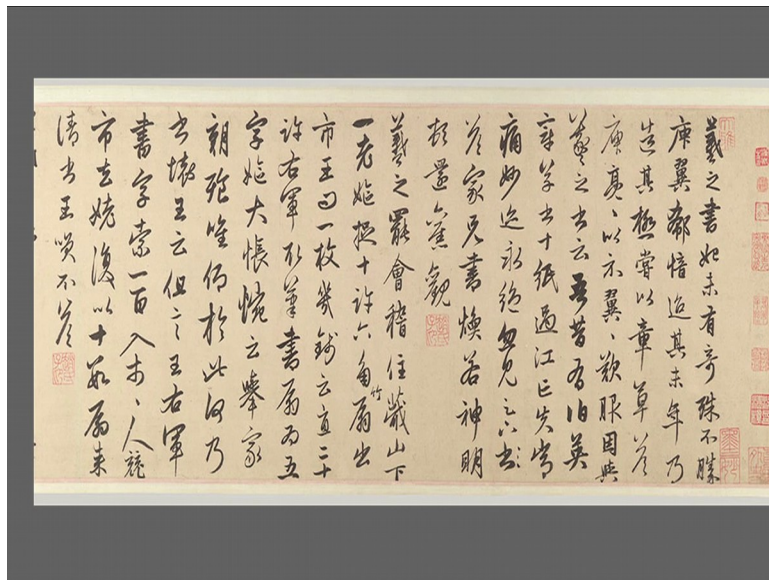 羲之書初未有奇殊不勝
庾翼郗愔迨其末年乃
造其極嘗以章草答
庾亮、以示翼、歎服因與
羲之書云吾昔有伯英
章草書十紙過江亡失常
痛妙迹永絕忽見足下書
答家兄書煥若神明
頓還舊觀
羲之罷會稽住蕺山下
一老嫗捉十許六角竹扇出
市王問一枚幾錢云直二十
許右軍取筆書扇為五
字嫗大悵惋云舉家
朝飱唯仰於此何乃
書壞王云但言王右軍
書字索一百入市、人競
市去姥復以十數扇來
請書王笑不答